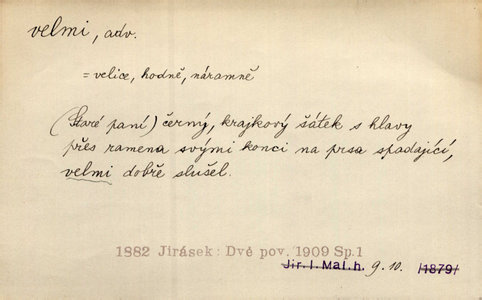 velmi, adv.
= velice, hodně, náramně
(Staré paní) černý, krajkový šátek s hlavy
přes ramena svými konci na prsa spadající,
velmi dobře slušel.
1882 Jirásek: Dvě pov. 1909 Sp.1
Jir. I. Mal.h. 9.10. /1879/